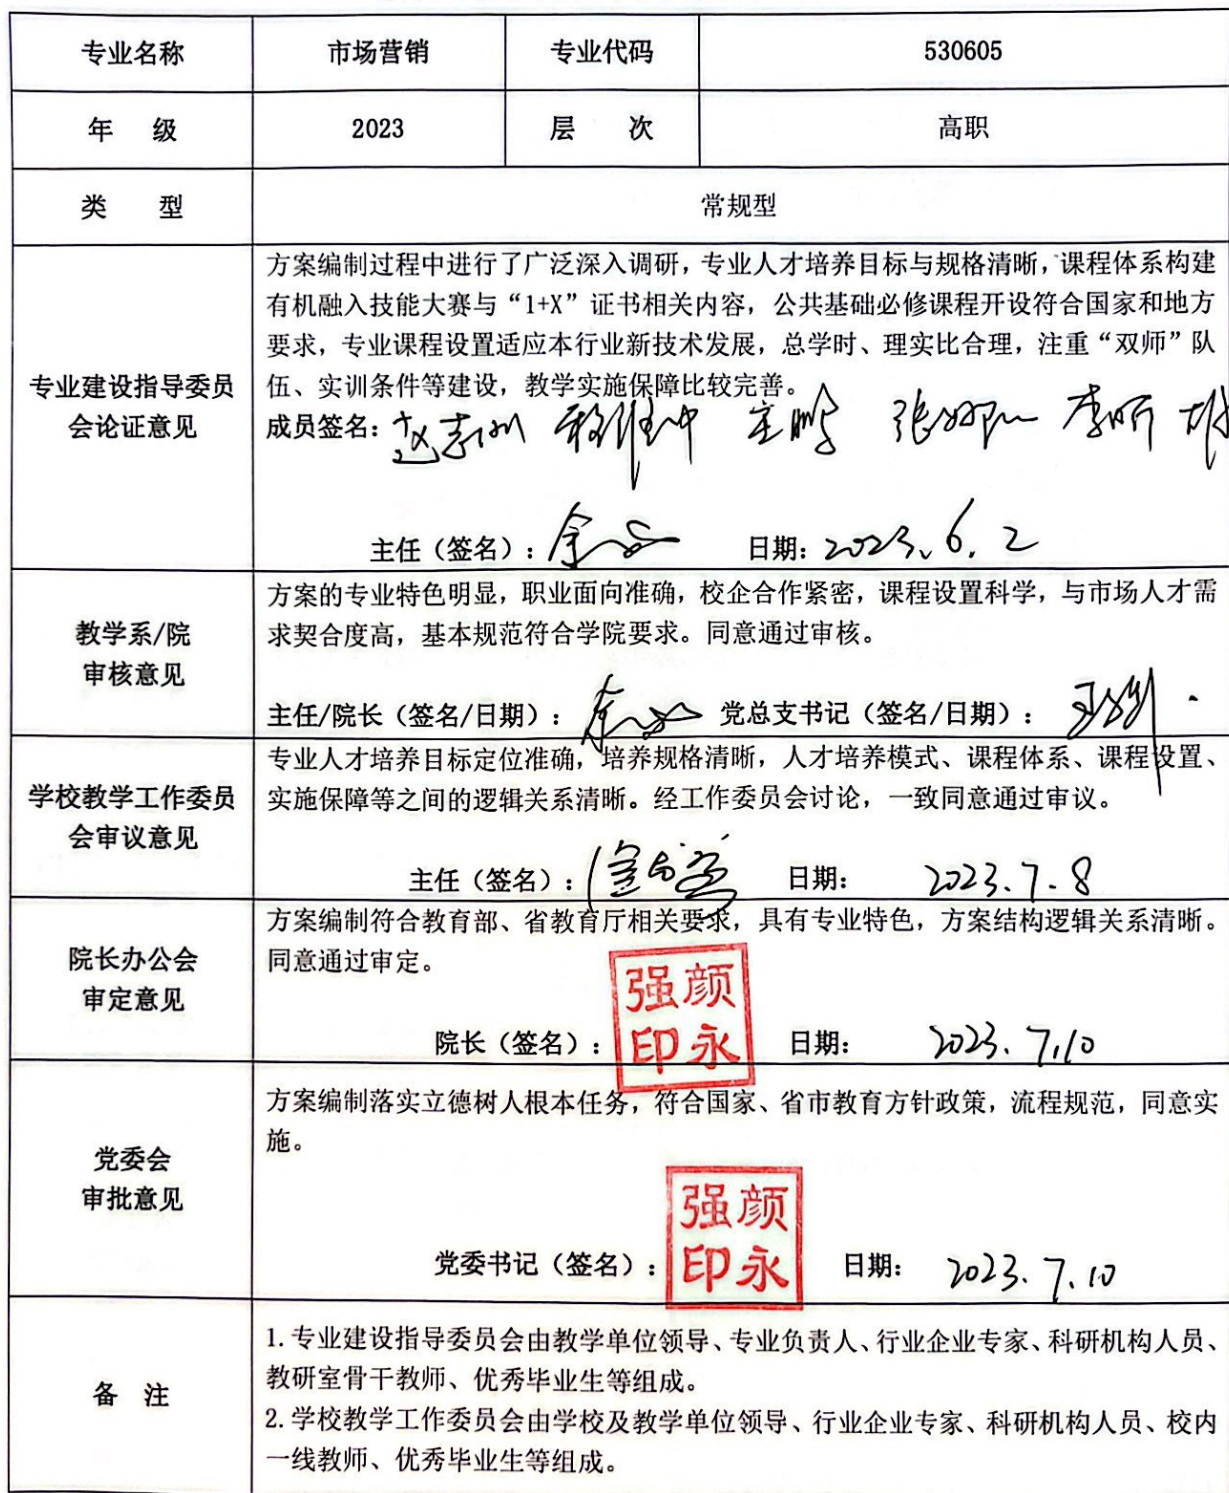 专业名称 市场营销 专业代码 530605
年 级 2023 层 次 高职
类 型 常规型
专业建设指导委员
会论证意见
方案编制过程中进行了广泛深入调研，专业人才培养目标与规格清晰，课程体系构建
有机融入技能大赛与“1+X”证书相关内容，公共基础必修课程开设符合国家和地方
要求，专业课程设置适应本行业新技术发展，总学时、理实比合理，注重“双师”队
伍、实训条件等建设，教学实施保障比较完善。
成员签名：
主任（签名）： 日期：2023.6.2
教学系/院
审核意见
方案的专业特色明显，职业面向准确，校企合作紧密，课程设置科学，与市场人才需
求契合度高，基本规范符合学院要求。同意通过审核。
主任/院长（签名/日期）： 党总支书记（签名/日期）：
学校教学工作委员
会审议意见
专业人才培养目标定位准确，培养规格清晰，人才培养模式、课程体系、课程设置、
实施保障等之间的逻辑关系清晰。经工作委员会讨论，一致同意通过审议。
主任（签名）： 日期： 2023.7.8
院长办公会
审定意见
方案编制符合教育部、省教育厅相关要求，具有专业特色，方案结构逻辑关系清晰。
同意通过审定。
院长（签名）： 颜永强印 日期： 2023.7.10
党委会
审批意见
方案编制落实立德树人根本任务，符合国家、省市教育方针政策，流程规范，同意实
施。
党委书记（签名）： 颜永强印 日期： 2023.7.10
备 注
1.专业建设指导委员会由教学单位领导、专业负责人、行业企业专家、科研机构人员、
教研室骨干教师、优秀毕业生等组成。
2.学校教学工作委员会由学校及教学单位领导、行业企业专家、科研机构人员、校内
一线教师、优秀毕业生等组成。